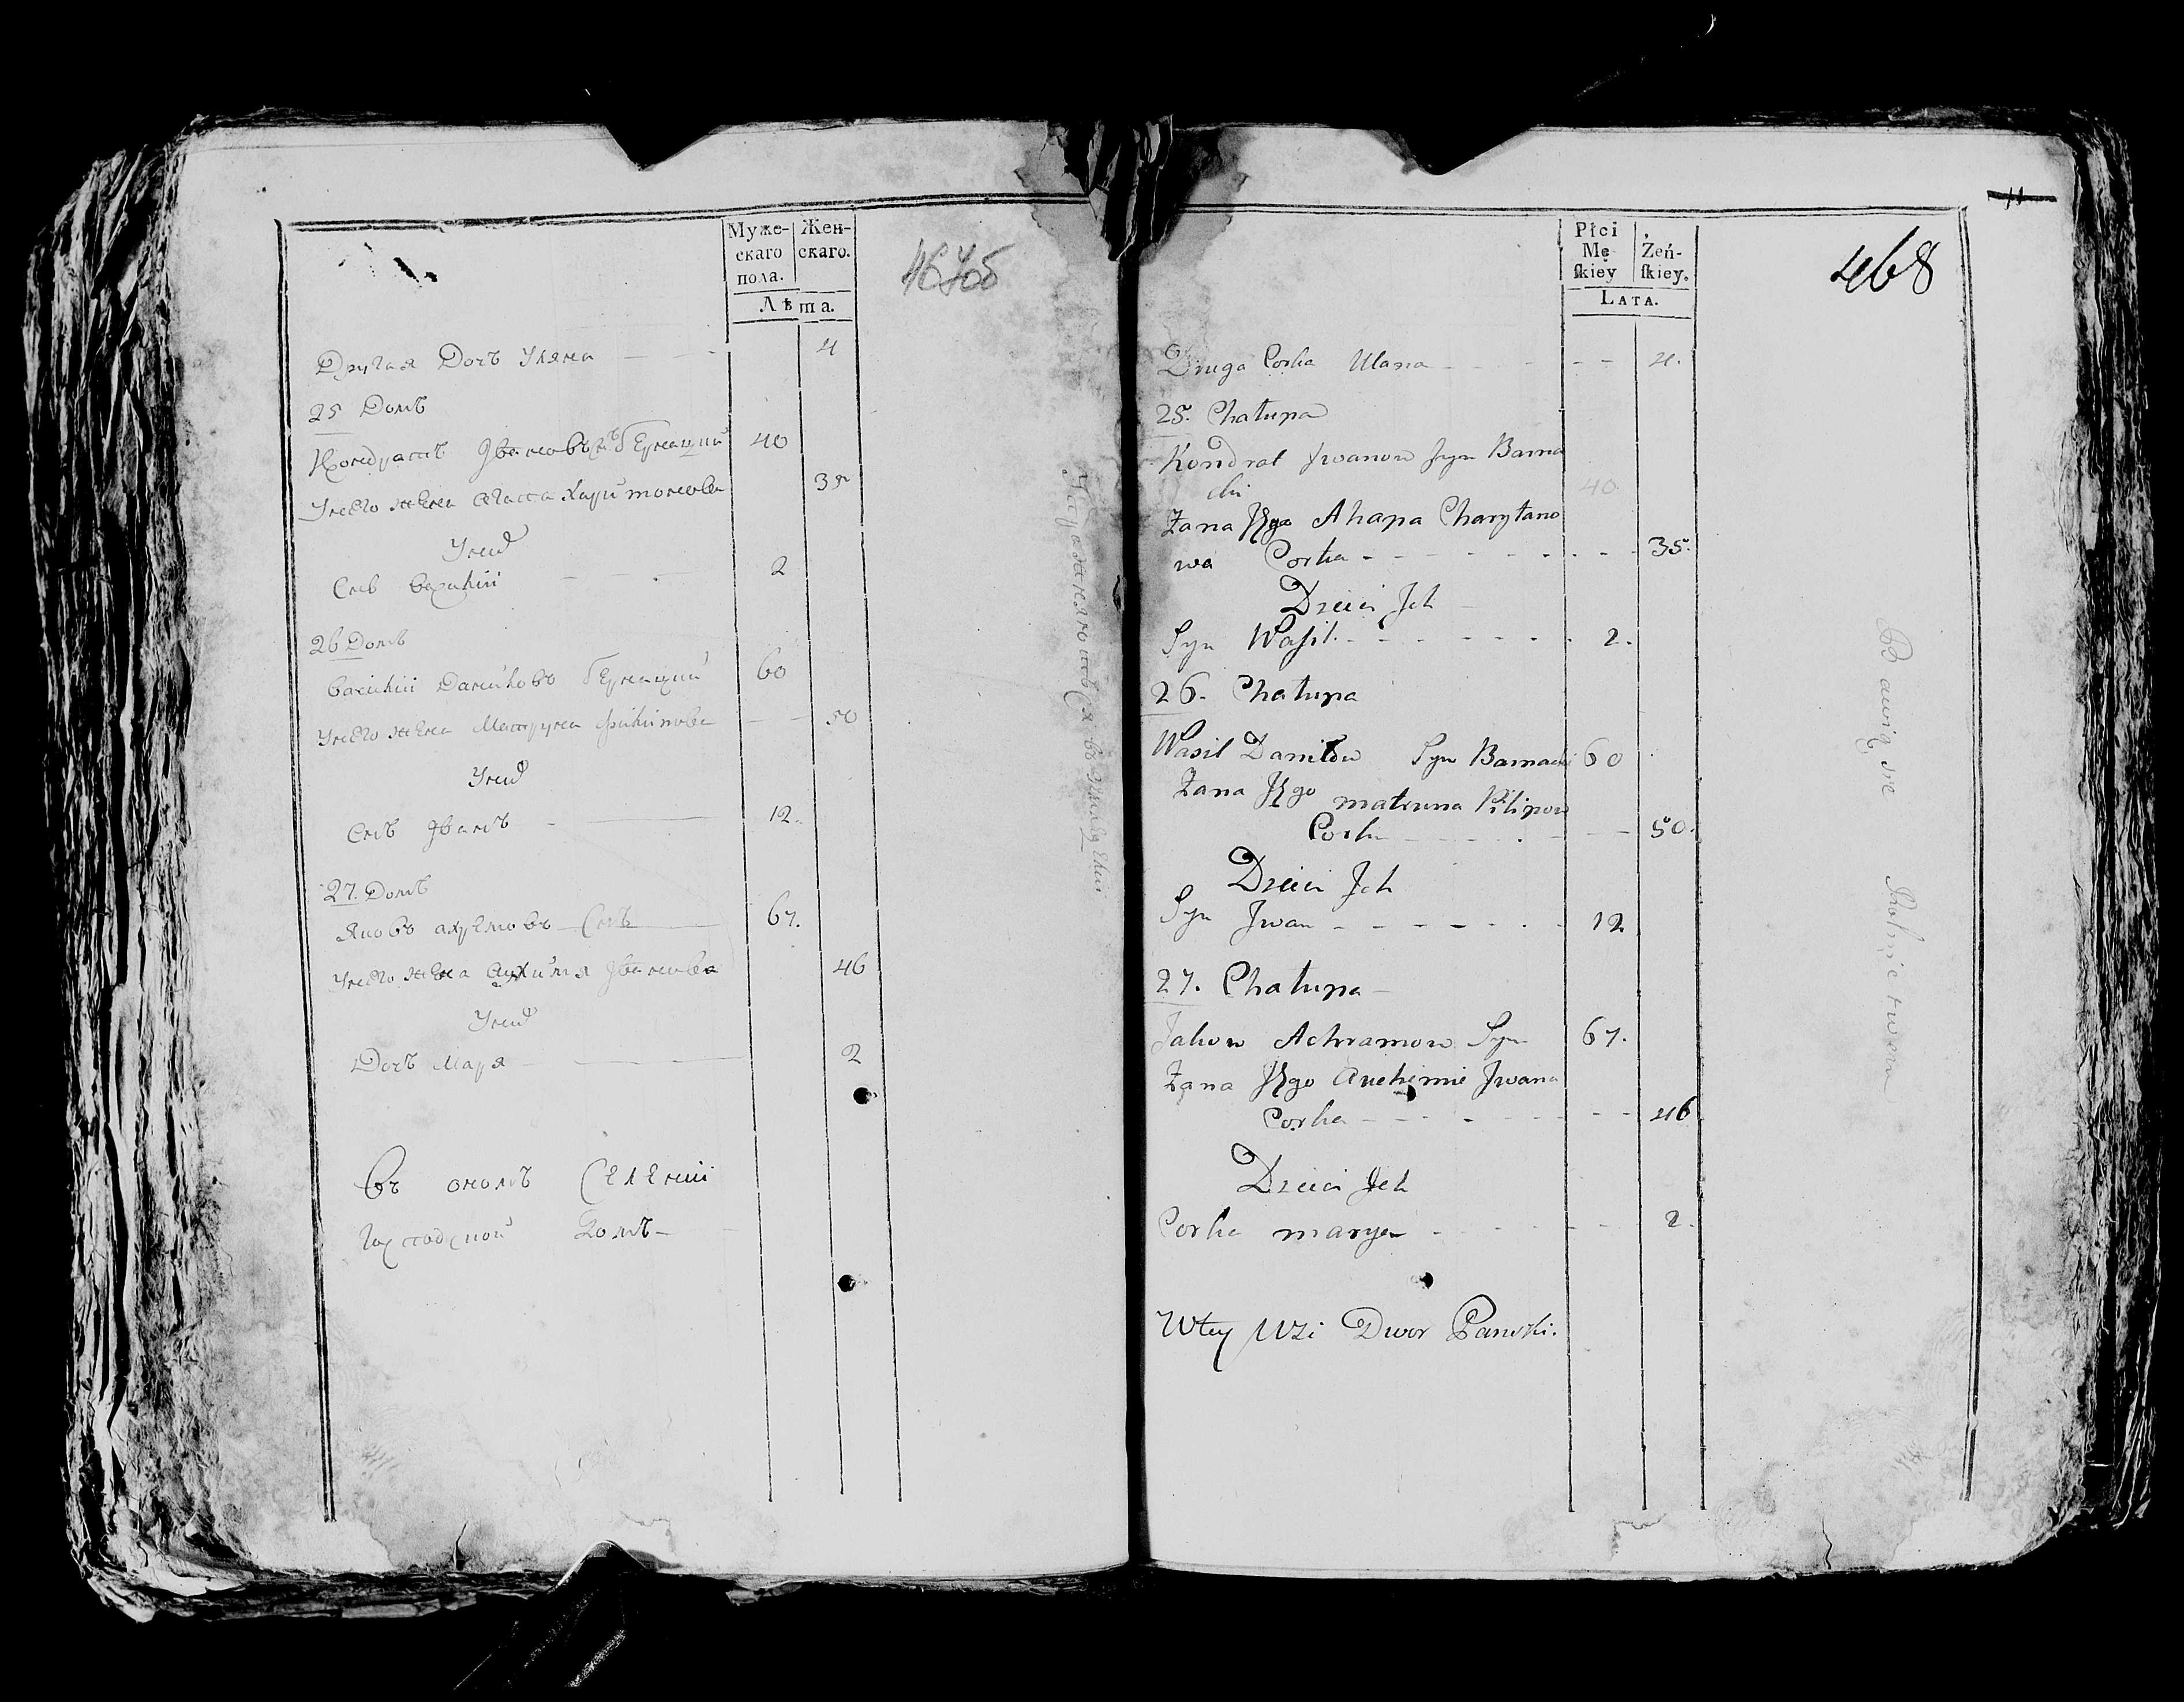 Муже-
скаго
пола.
Жен-
скаго.
Лѣта.
467об
Другая Дочъ Уляна 4
25 Домъ
Кондратъ Ивановъ 40
Унего жена Агапа Харитонова 35
Унид
Снъ Василій 2
26 Домъ
Василій Даниловъ 60
Унего жена Матруна Филипова 50
Унид
Снъ Иванъ 12.
27. Домъ
Яковъ Ахремовъ Снъ 67.
Унего жена Аухимія Иванова 46
Унид
Дочъ Маря 2
Въ ономъ Селеніи
Господской Домъ
11
Płci
Mę
ſkiey
Żeń-
ſkiey.
LATA.
468
Druga Corka Ulana 4.
25. Chałupa
Kondrat Jwanow Syn Barna
cki 40
Zana Jego Ahapa Charytano
wa Corka 35.
Dzieci Jch
Syn Waſil 2.
26. Chałupa
Wasil Daniłow Syn Barnacki 60
Zana Jego matruna Pilipow
Corka 50.
Dzieci Jch
Syn Jwan 12
27. Chałupa
Jakow Achramow Syn 67.
Zana Jego Auchimie Jwana
Corka 46
Dzieci Jch
Corka marya 2.
Wtey Wsi Dwor Panski.
Bawią się Rolnictwem